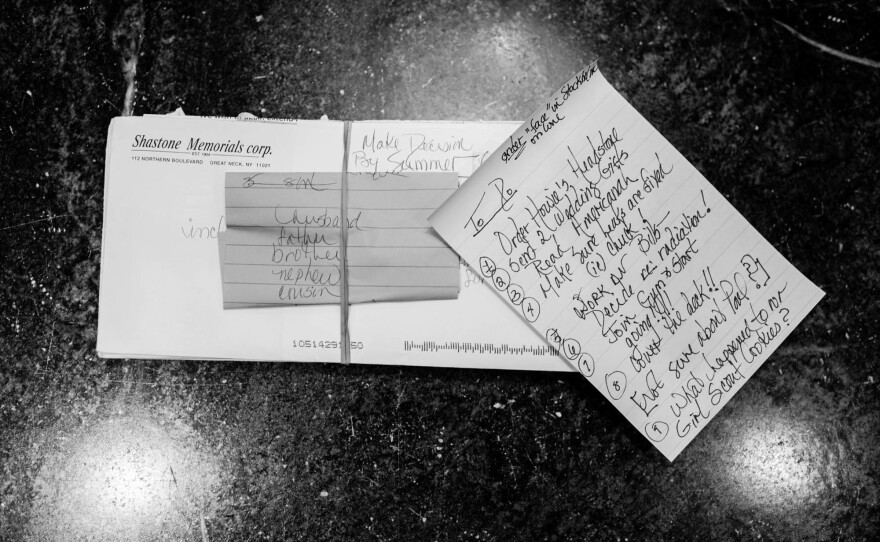 Shastone Memorials corp.
EST. 1904
112 NORTHERN BOULEVARD GREAT NECK, NY 11021
Make Decision
By Summer
son
husband
father
brother
nephew
cousin
incl
10514291 50
order "face" in Stockholm
on line
To Do
① Order Howie's Headstone
② Send 2 Wedding Gifts
③ Read Americanah
④ Make sure leaks are fixed
(ie) duck!
⑤ Work on Bills
⑥ Decide re: radiation!
⑦ Join Gym & start
going!!!!
⑧ Build the deck!!
[not sure about Pool?]
⑨ What happened to my
Girl Scout Cookies?